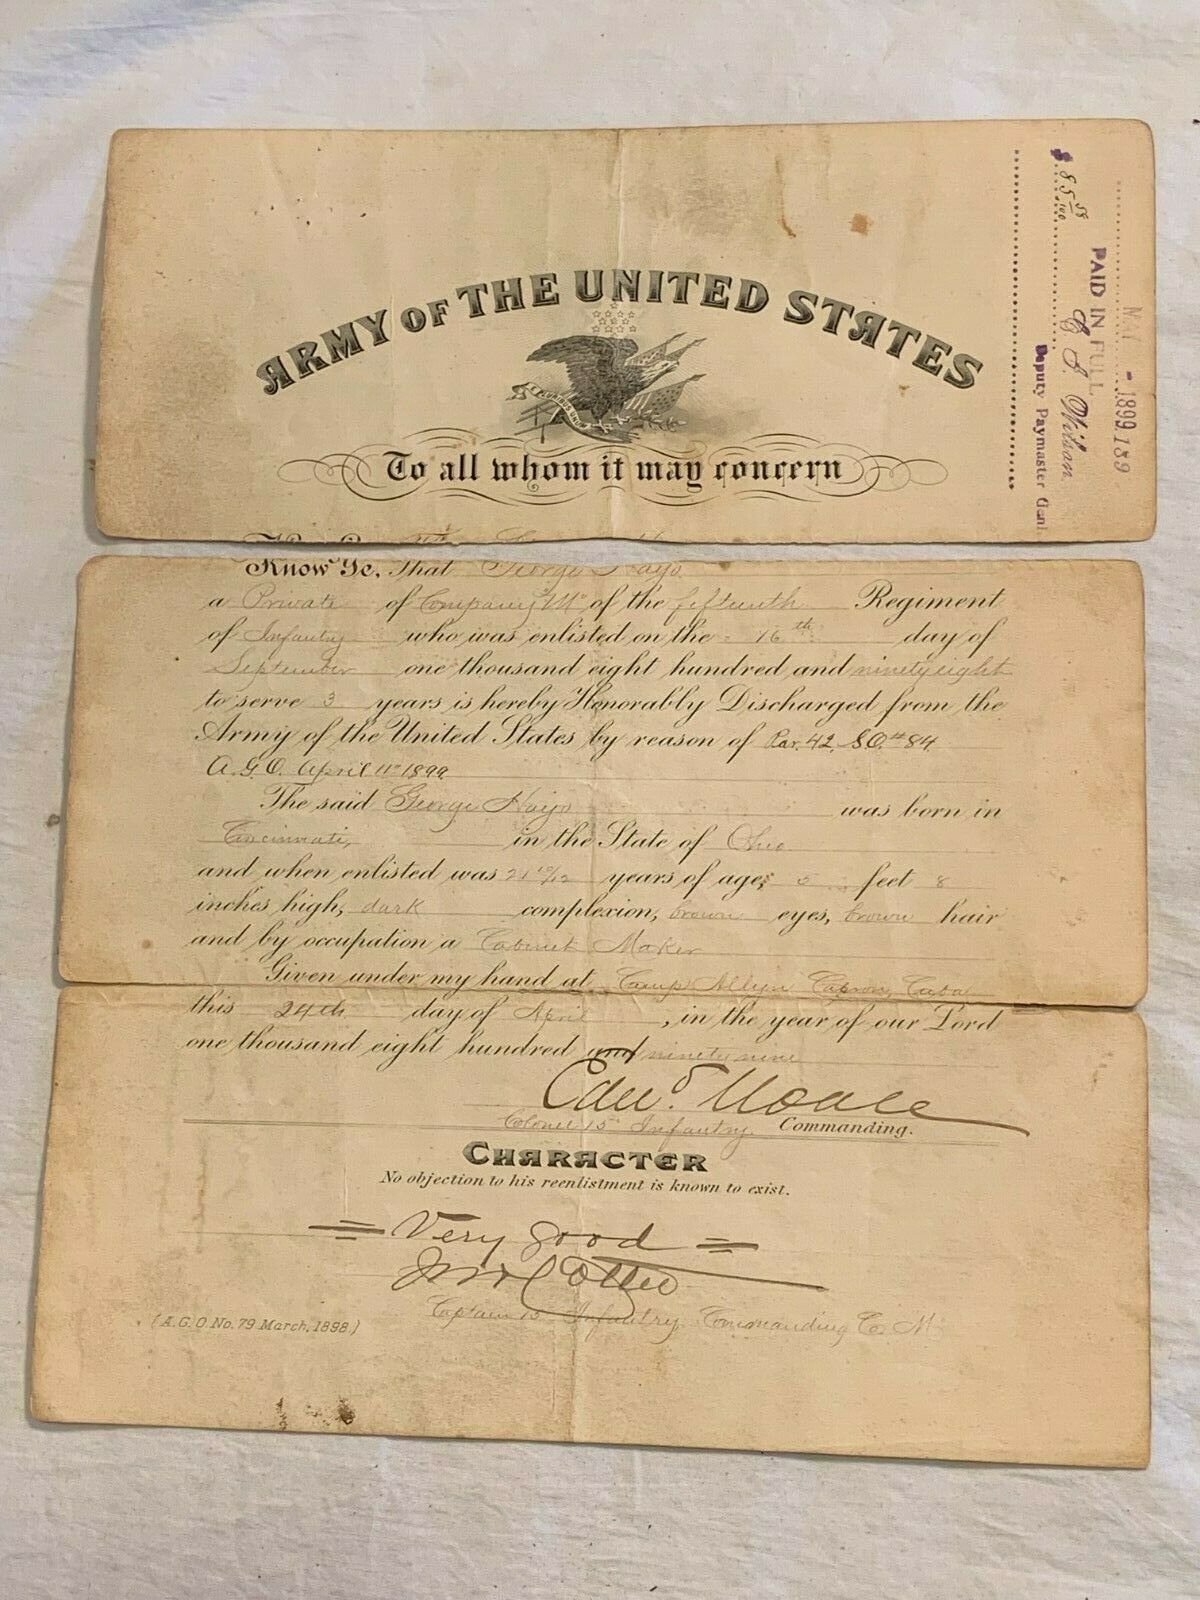 ARMY OF THE UNITED STATES
E PLURIBUS UNUM
To all whom it may concern
Know Ye, That George Hays
a Private of Company "M" of the fifteenth Regiment
of Infantry who was enlisted on the 16th day of
September one thousand eight hundred and ninety eight
to serve 3 years is hereby Honorably Discharged from the
Army of the United States by reason of Par. 42, S.O. # 84
A.G.O. April 11" 1899
The said George Hays was born in
Cincinnati, in the State of Ohio
and when enlisted was 21 10/12 years of age, 5 feet 8
inches high, dark complexion, brown eyes, brown hair
and by occupation a Cabinet Maker
Given under my hand at Camp Allyn Capron, Cuba
this 24th day of April, in the year of our Lord
one thousand eight hundred and ninety nine
Edwd. Moale
Colonel 15" Infantry Commanding.
CHARACTER
No objection to his reenlistment is known to exist.
Very good
Captain 15" Infantry Commanding Co. M
(A.G.O. No. 79 March, 1898.)
189
MAY - 1899
PAID IN FULL
$ 85 58/100
C I Wilson
Deputy Paymaster Genl.